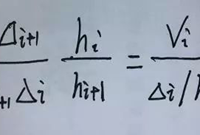 Δi+1 / +1 Δi hi / hi+1 = Vi / Δi /